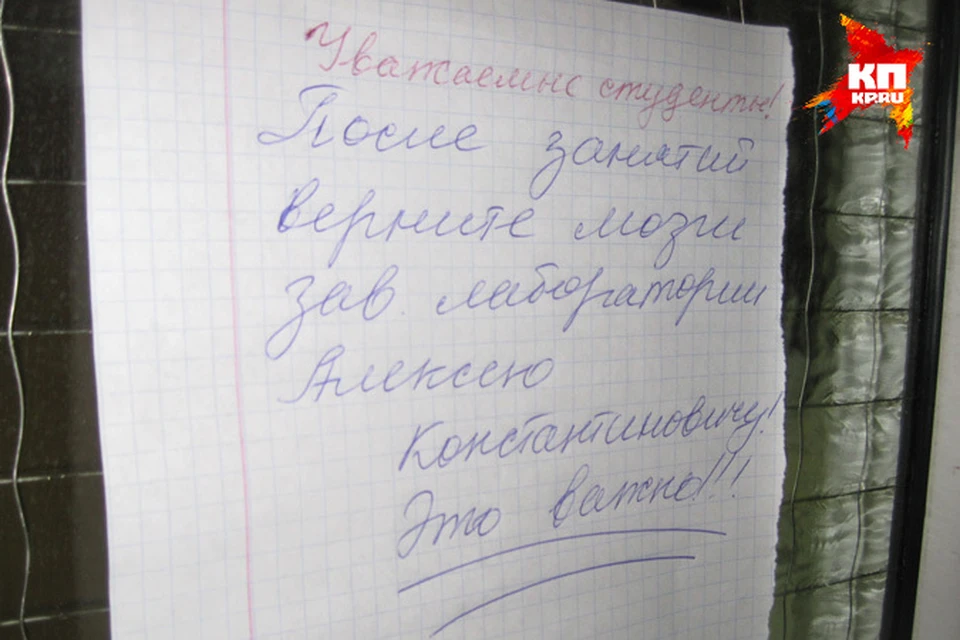 Уважаемые студенты!
После занятий
верните мозги
зав. лаборатории
Алексею
Константиновичу!
Это важно!!!
КП
KP.RU